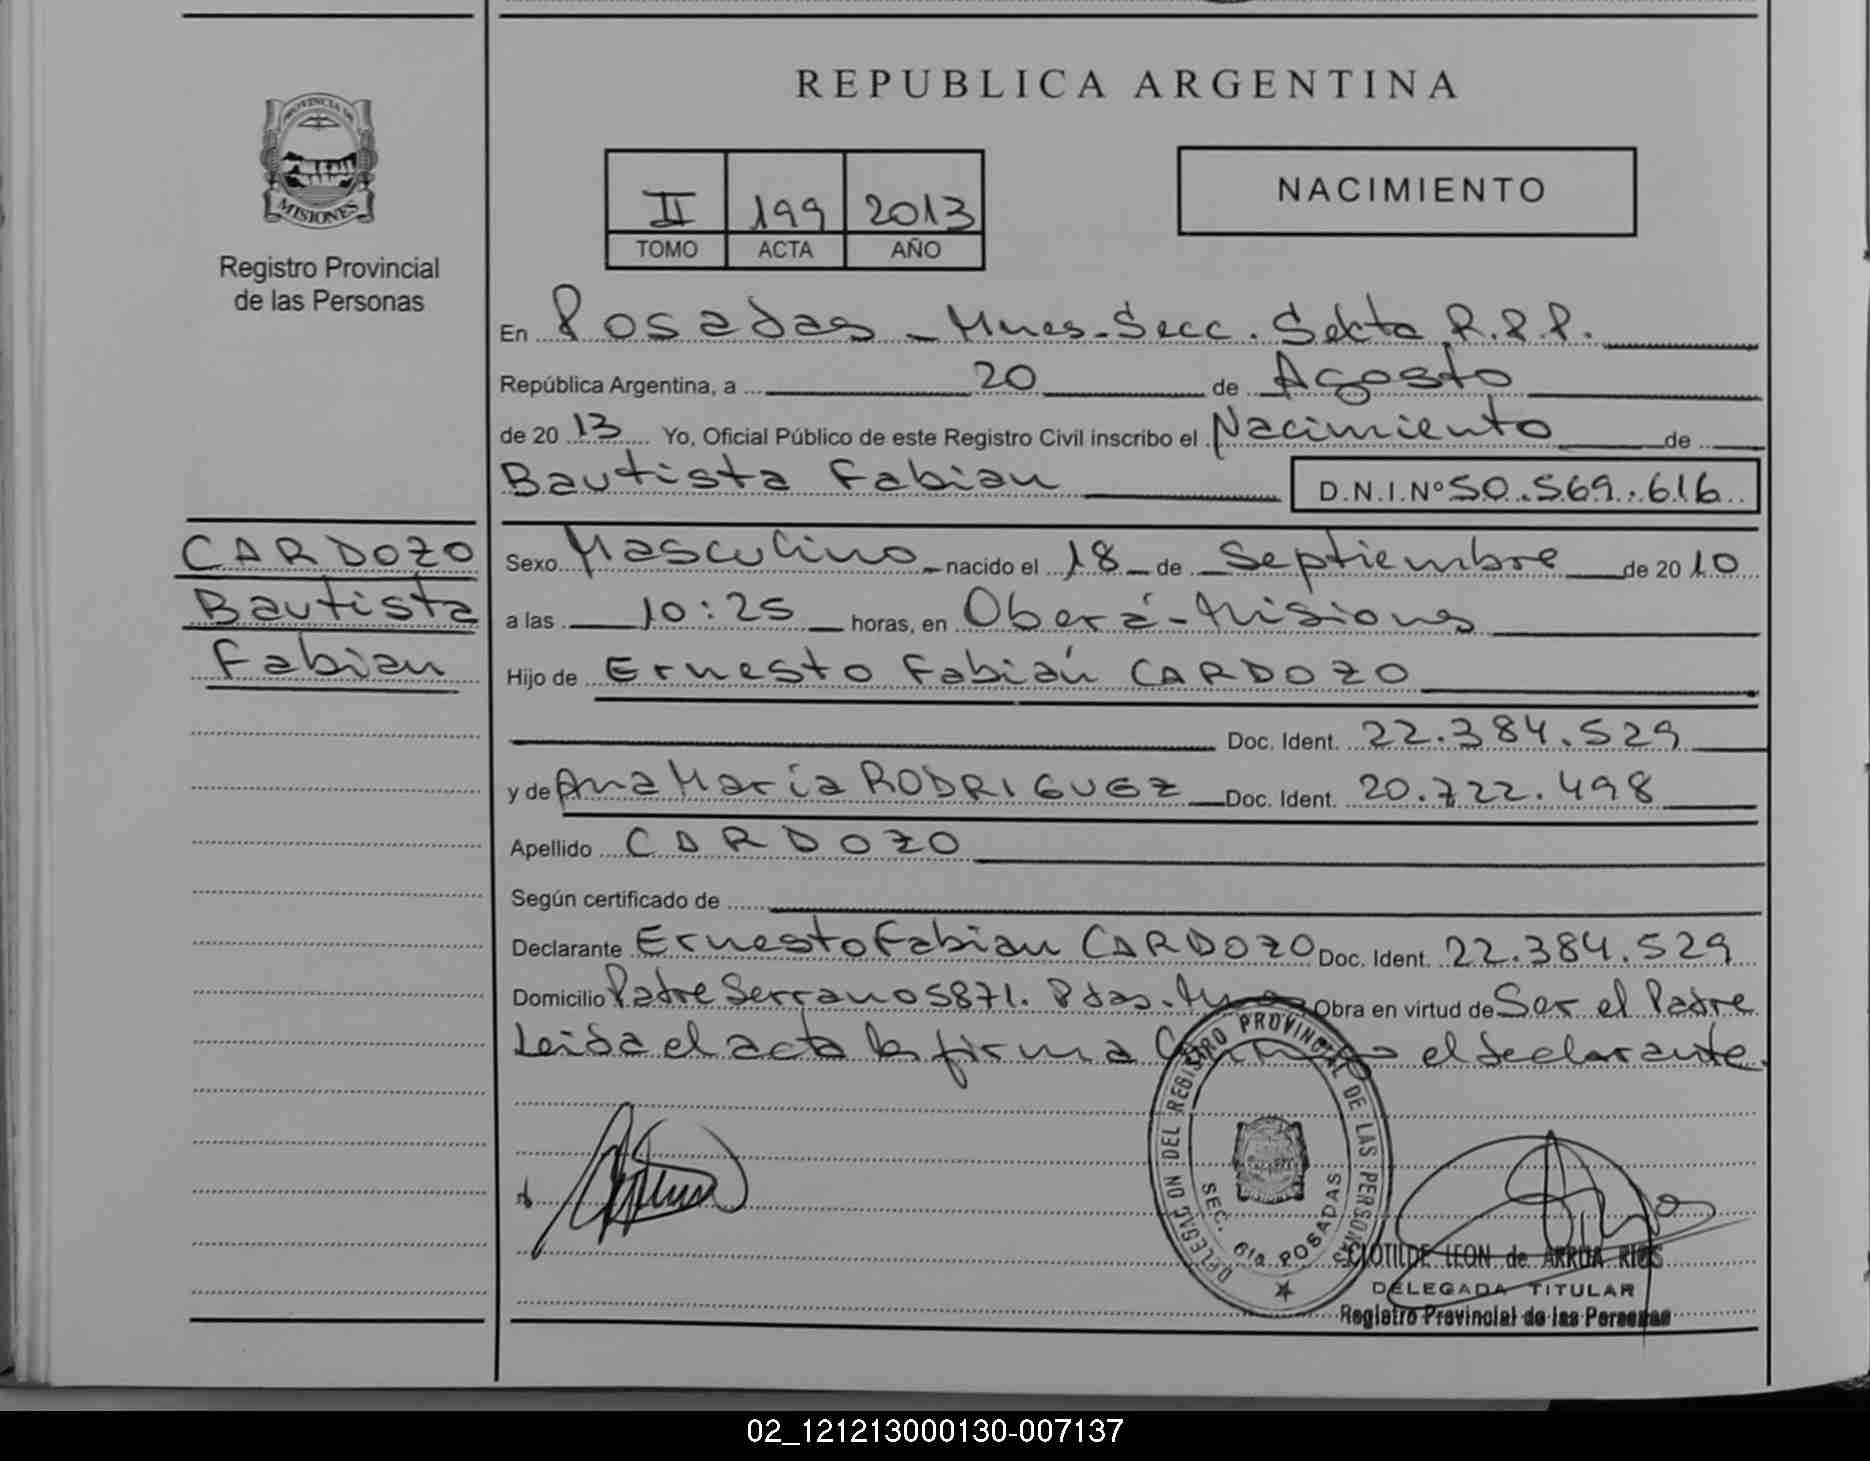 REPUBLICA ARGENTINA
PROVINCIA DE
MISIONES
Registro Provincial
de las Personas
II 199 2013
TOMO ACTA AÑO
NACIMIENTO
En Posadas - Mnes. Secc. Sexta R.P.P.
República Argentina, a 20 de Agosto
de 2013 Yo, Oficial Público de este Registro Civil inscribo el Nacimiento de
Bautista Fabian D.N.I.Nº 50.569.616
CARDOZO
Bautista
Fabian
Sexo Masculino nacido el 18 de Septiembre de 2010
a las 10:25 horas, en Oberá - Misiones
Hijo de Ernesto Fabián CARDOZO
Doc. Ident. 22.384.529
y de Ana María RODRIGUEZ Doc. Ident. 20.722.498
Apellido CARDOZO
Según certificado de
Declarante Ernesto Fabian CARDOZO Doc. Ident. 22.384.529
Domicilio Padre Serrano 5871. Pdas. Obra en virtud de Ser el Padre
Leida el acta la firma el declarante.
DELEGACION DEL REGISTRO PROVINCIAL DE LAS PERSONAS
SEC. 6ta POSADAS
CLOTILDE LEON de ARRUA RIOS
DELEGADA TITULAR
Registro Provincial de las Personas
02_121213000130-007137